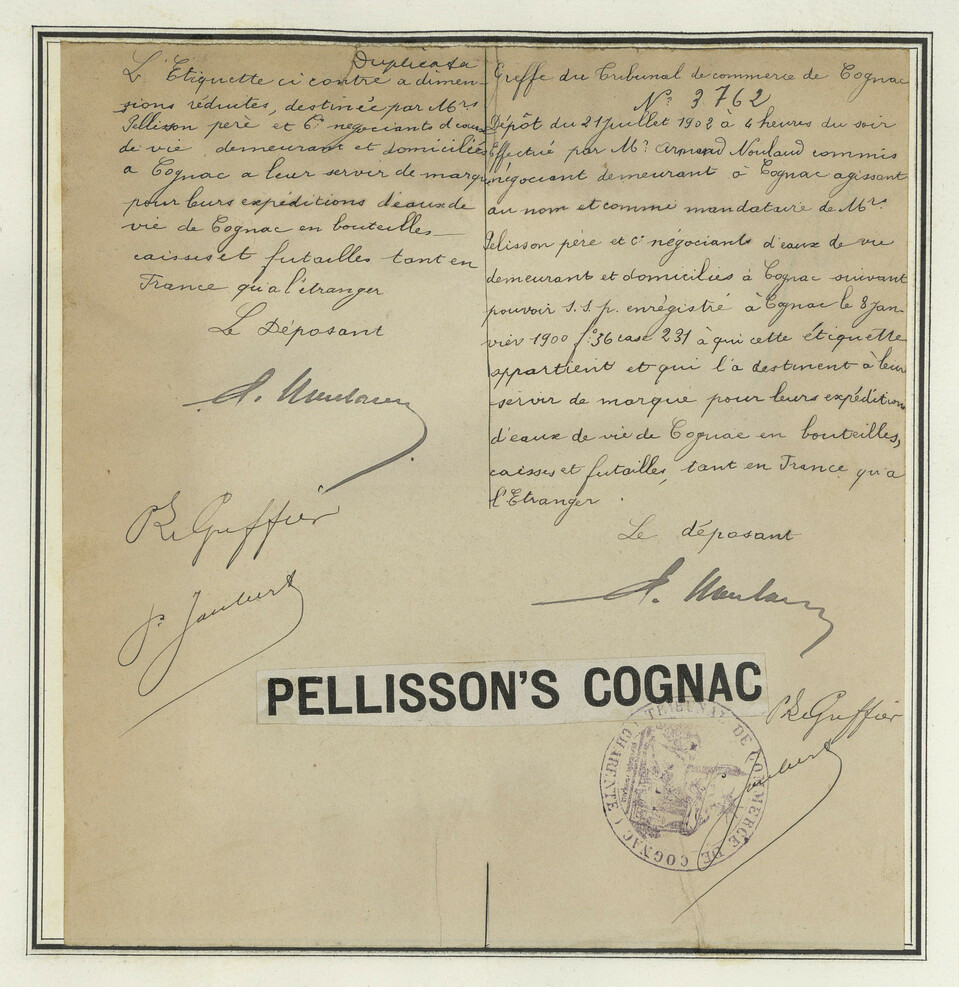 Duplicata
L'Etiquette ci contre a dimen-
sions réduites, destinée par Mrs
Pellisson père et Cie négociants d'eaux
de vie demeurant et domiciliés
a Cognac a leur servir de marque
pour leurs expéditions d'eaux de
vie de Cognac en bouteilles
caisses et futailles tant en
France qu'a l'étranger
Le Déposant
P. Le Greffier
P. Joubert
Greffe du Tribunal de commerce de Cognac
No 3762
Dépôt du 21 Juillet 1902 à 4 heures du soir
Effectué par Mr Armand commis
négociant demeurant à Cognac agissant
au nom et comme mandataire de Mrs
Pelisson père et Cie négociants d'eaux de vie
demeurant et domiciliés à Cognac suivant
pouvoir s.s.p. enrégistré à Cognac le 8 Jan-
vier 1900 fo 36 case 231 à qui cette étiquette
appartient et qui l'a destinent à leur
servir de marque pour leurs expéditions
d'eaux de vie de Cognac en bouteilles,
caisses et futailles, tant en France qu'a
l'Etranger.
Le déposant
PELLISSON'S COGNAC
P. Le Greffier
Joubert
TRIBUNAL DE COMMERCE DE COGNAC (CHARENTE)